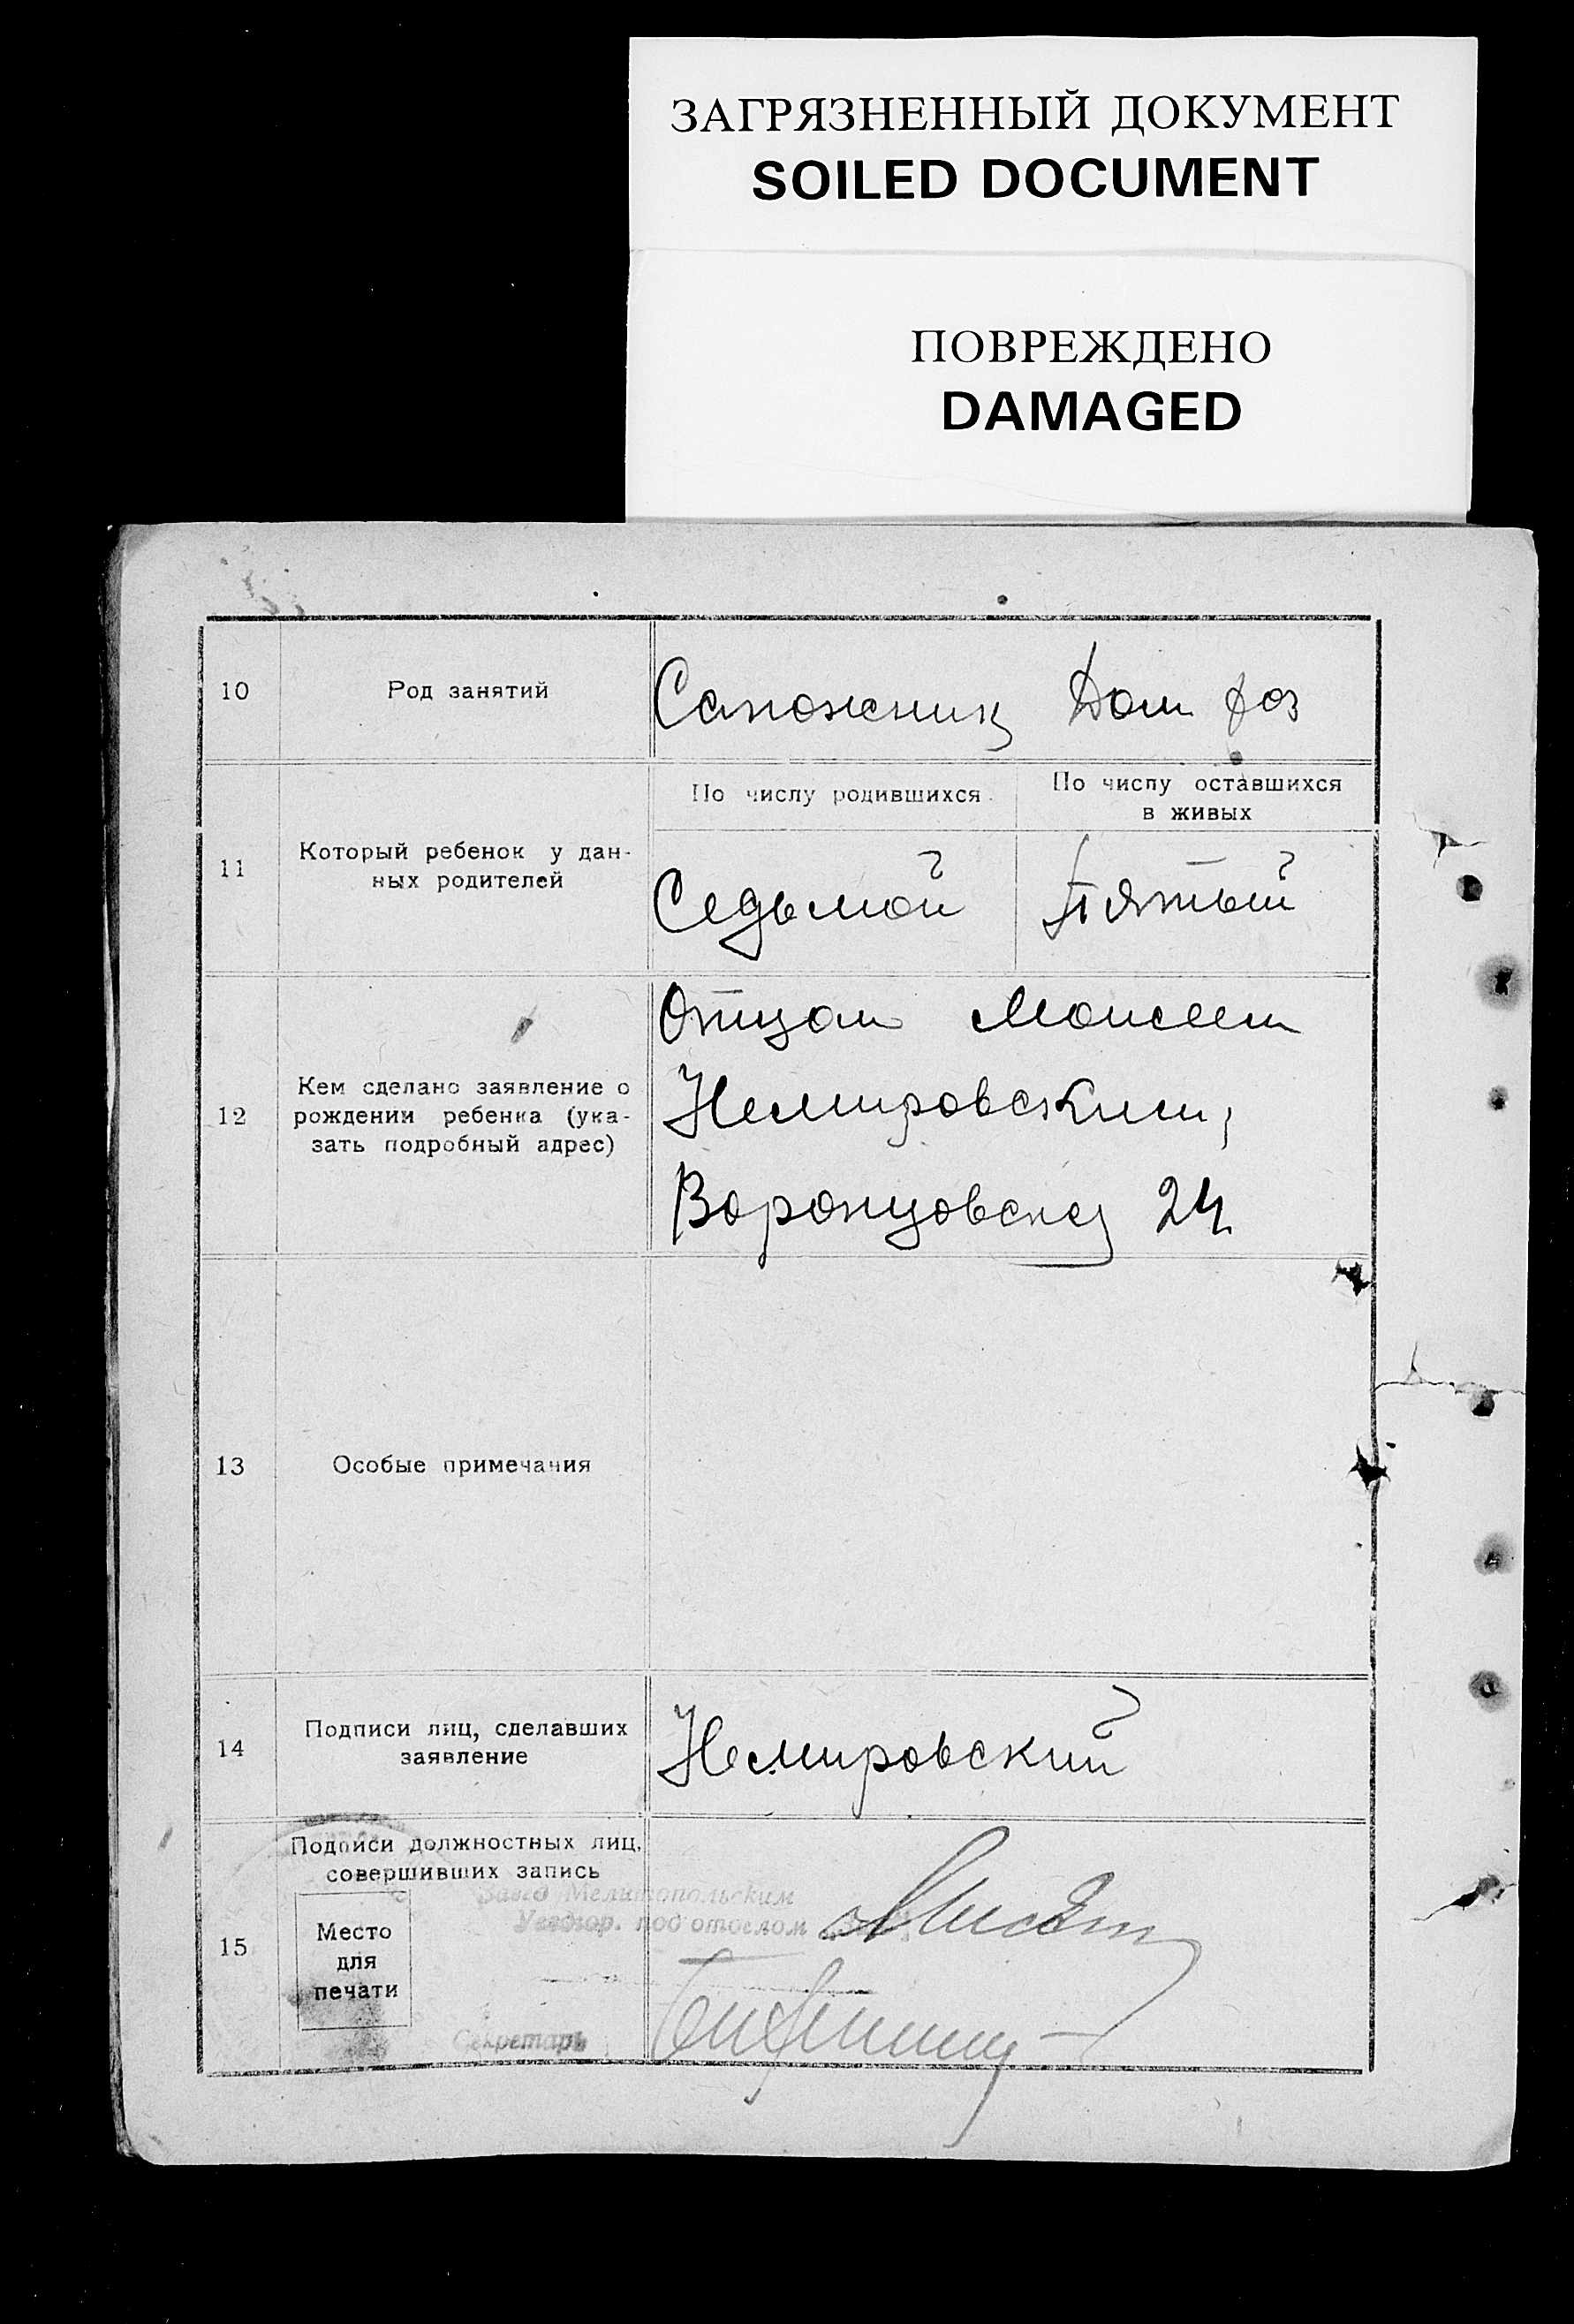 ЗАГРЯЗНЕННЫЙ ДОКУМЕНТ
SOILED DOCUMENT
ПОВРЕЖДЕНО
DAMAGED
10 Род занятий Сапожник Дом хоз
По числу родившихся По числу оставшихся
в живых
11 Который ребенок у дан-
ных родителей Седьмой Пятый
12 Кем сделано заявление о
рождении ребенка (ука-
зать подробный адрес)
Отцом Моисеем
Немировским,
Воронцовская 24
13 Особые примечания
14 Подписи лиц, сделавших
заявление Немировский
15 Подписи должностных лиц,
совершивших запись
Место
для
печати
Завед Мелитопольским
под отделом
Секретарь